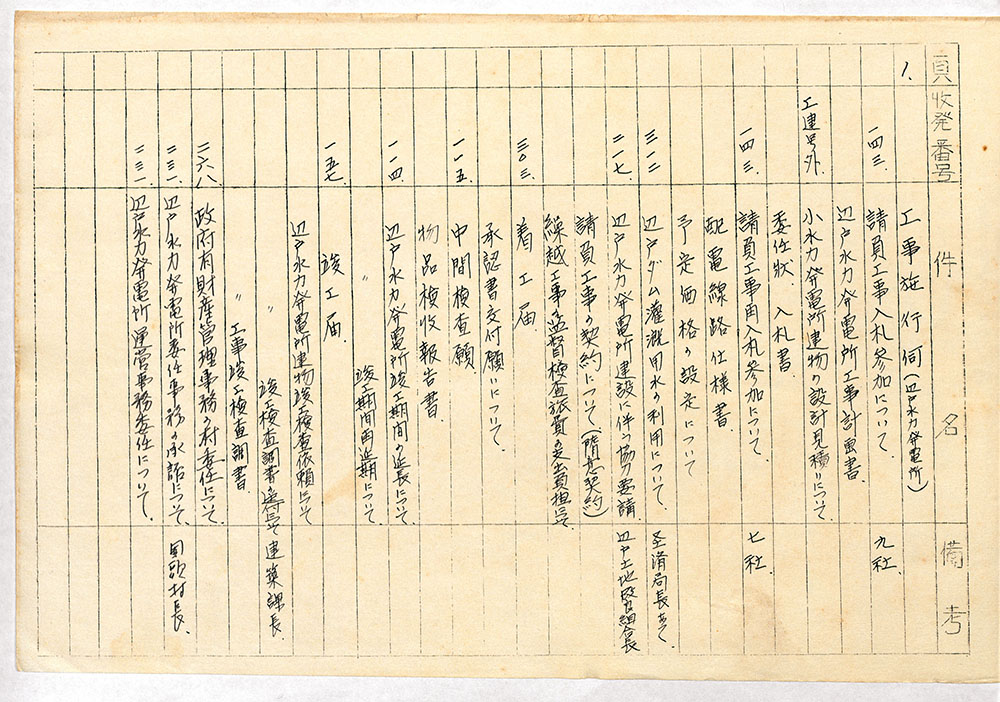 頁 収発番号 件名 備考
1. 工事施行伺(辺戸水力発電所)
一四三. 請負工事入札参加について. 九社.
辺戸水力発電所工事計画書
工連号外. 小水力発電所建物の設計見積りについて
委任状. 入札書
一四三. 請負工事再入札参加について. 七社.
配電線路仕様書.
予定価格の設定について
三一二. 辺戸ダム灌漑用水の利用について. 圣済局長あて
二一七. 辺戸水力発電所建設に伴う協力要請 辺戸土地改良組合長
請負工事の契約について(随意契約)
繰越工事の監督検査旅費の支出負担
三〇三. 着工届.
承認書交付願いについて.
一一五. 中間検査願
物品検収報告書.
一一四. 辺戸水力発電所竣工期間の延長について
〃 竣工期間再延期について
一五七. 竣工届.
辺戸水力発電所建物竣工検査依頼について
〃 竣工検査調書 建築課長.
〃 工事竣工検査調書.
二六八 政府有財産管理事務の村委任について.
二三一. 辺戸水力発電所委任事務の承諾について. 国頭村長.
二三一. 辺戸水力発電所運営事務委任について.